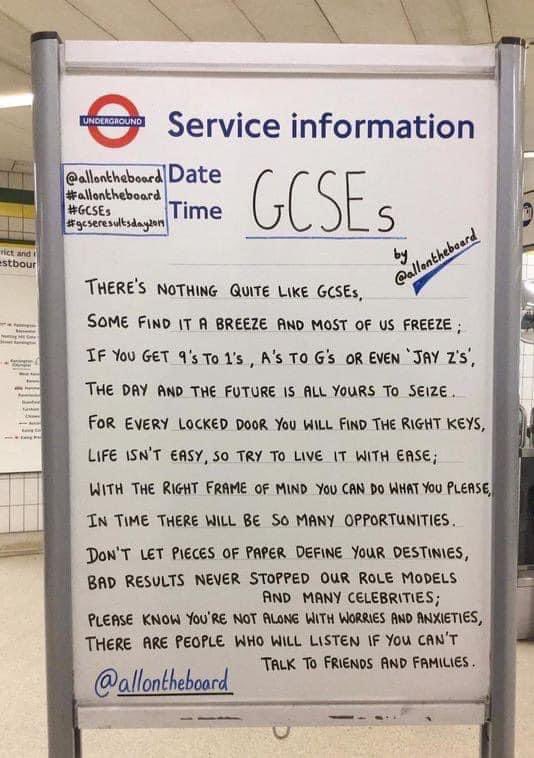 UNDERGROUND
Service information
@allontheboard
#allontheboard
#GCSEs
#gcseresultsday2019
Date
Time
GCSEs
by
@allontheboard
THERE'S NOTHING QUITE LIKE GCSEs,
SOME FIND IT A BREEZE AND MOST OF US FREEZE;
IF YOU GET 9's TO 1's, A's TO G's OR EVEN 'JAY Z's',
THE DAY AND THE FUTURE IS ALL YOURS TO SEIZE.
FOR EVERY LOCKED DOOR YOU WILL FIND THE RIGHT KEYS,
LIFE ISN'T EASY, SO TRY TO LIVE IT WITH EASE;
WITH THE RIGHT FRAME OF MIND YOU CAN DO WHAT YOU PLEASE,
IN TIME THERE WILL BE SO MANY OPPORTUNITIES.
DON'T LET PIECES OF PAPER DEFINE YOUR DESTINIES,
BAD RESULTS NEVER STOPPED OUR ROLE MODELS
AND MANY CELEBRITIES;
PLEASE KNOW YOU'RE NOT ALONE WITH WORRIES AND ANXIETIES,
THERE ARE PEOPLE WHO WILL LISTEN IF YOU CAN'T
TALK TO FRIENDS AND FAMILIES.
@allontheboard